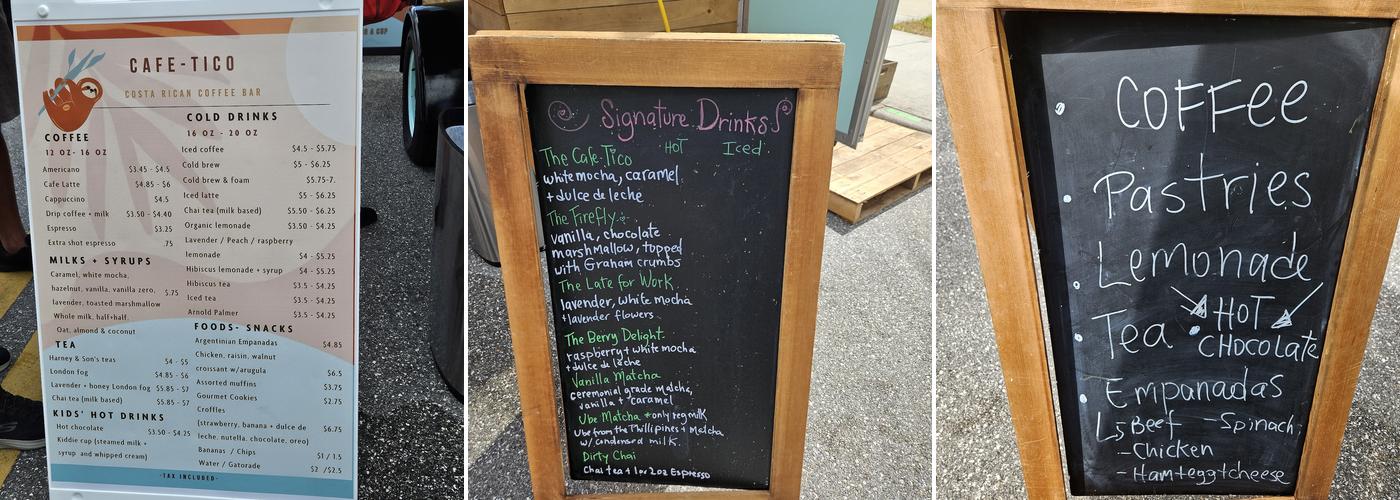 CAFE-TICO
COSTA RICAN COFFEE BAR
COFFEE
12 OZ- 16 OZ
Americano $3.45 - $4.5
Cafe Latte $4.85 - $6
Cappuccino $4.5
Drip coffee + milk $3.50 - $4.40
Espresso $3.25
Extra shot espresso .75
MILKS + SYRUPS
Caramel, white mocha,
hazelnut, vanilla, vanilla zero, $.75
lavender, toasted marshmallow
Whole milk, half+half,
Oat, almond & coconut
TEA
Harney & Son's teas $4 - $5
London fog $4.85 - $6
Lavender + honey London fog $5.85 - $7
Chai tea (milk based) $5.85 - $7
KIDS' HOT DRINKS
Hot chocolate $3.50 - $4.25
Kiddie cup (steamed milk +
syrup and whipped cream)
COLD DRINKS
16 OZ - 20 OZ
Iced coffee $4.5 - $5.75
Cold brew $5 - $6.25
Cold brew & foam $5.75-7.
Iced latte $5 - $6.25
Chai tea (milk based) $5.50 - $6.25
Organic lemonade $3.50 - $4.25
Lavender / Peach / raspberry
lemonade $4 - $5.25
Hibiscus lemonade + syrup $4 - $5.25
Hibiscus tea $3.5 - $4.25
Iced tea $3.5 - $4.25
Arnold Palmer $3.5 - $4.25
FOODS- SNACKS
Argentinian Empanadas $4.85
Chicken, raisin, walnut
croissant w/arugula $6.5
Assorted muffins $3.75
Gourmet Cookies $2.75
Croffles
(strawberry, banana + dulce de $6.75
leche, nutella, chocolate, oreo)
Bananas / Chips $1 / 1.5
Water / Gatorade $2 /$2.5
-TAX INCLUDED-
Signature Drinks
HOT Iced
The Cafe-Tico
white mocha, caramel
+ dulce de leche
The Firefly
vanilla, chocolate
marshmallow, topped
with Graham crumbs
The Late for Work
lavender, white mocha
+ lavender flowers
The Berry Delight
raspberry + white mocha
+ dulce de leche
Vanilla Matcha
ceremonial grade matcha,
vanilla + caramel
Ube Matcha *only reg milk
Ube from the Phillipines + Matcha
w/ condensed milk.
Dirty Chai
Chai tea + 1 or 2 oz Espresso
COFFee
Pastries
Lemonade
Tea HOT
CHocolate
Empanadas
Beef - Spinach
- Chicken
- Ham+egg+cheese